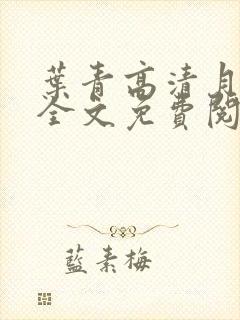 葉青高清月
全文免費閱
藍素梅